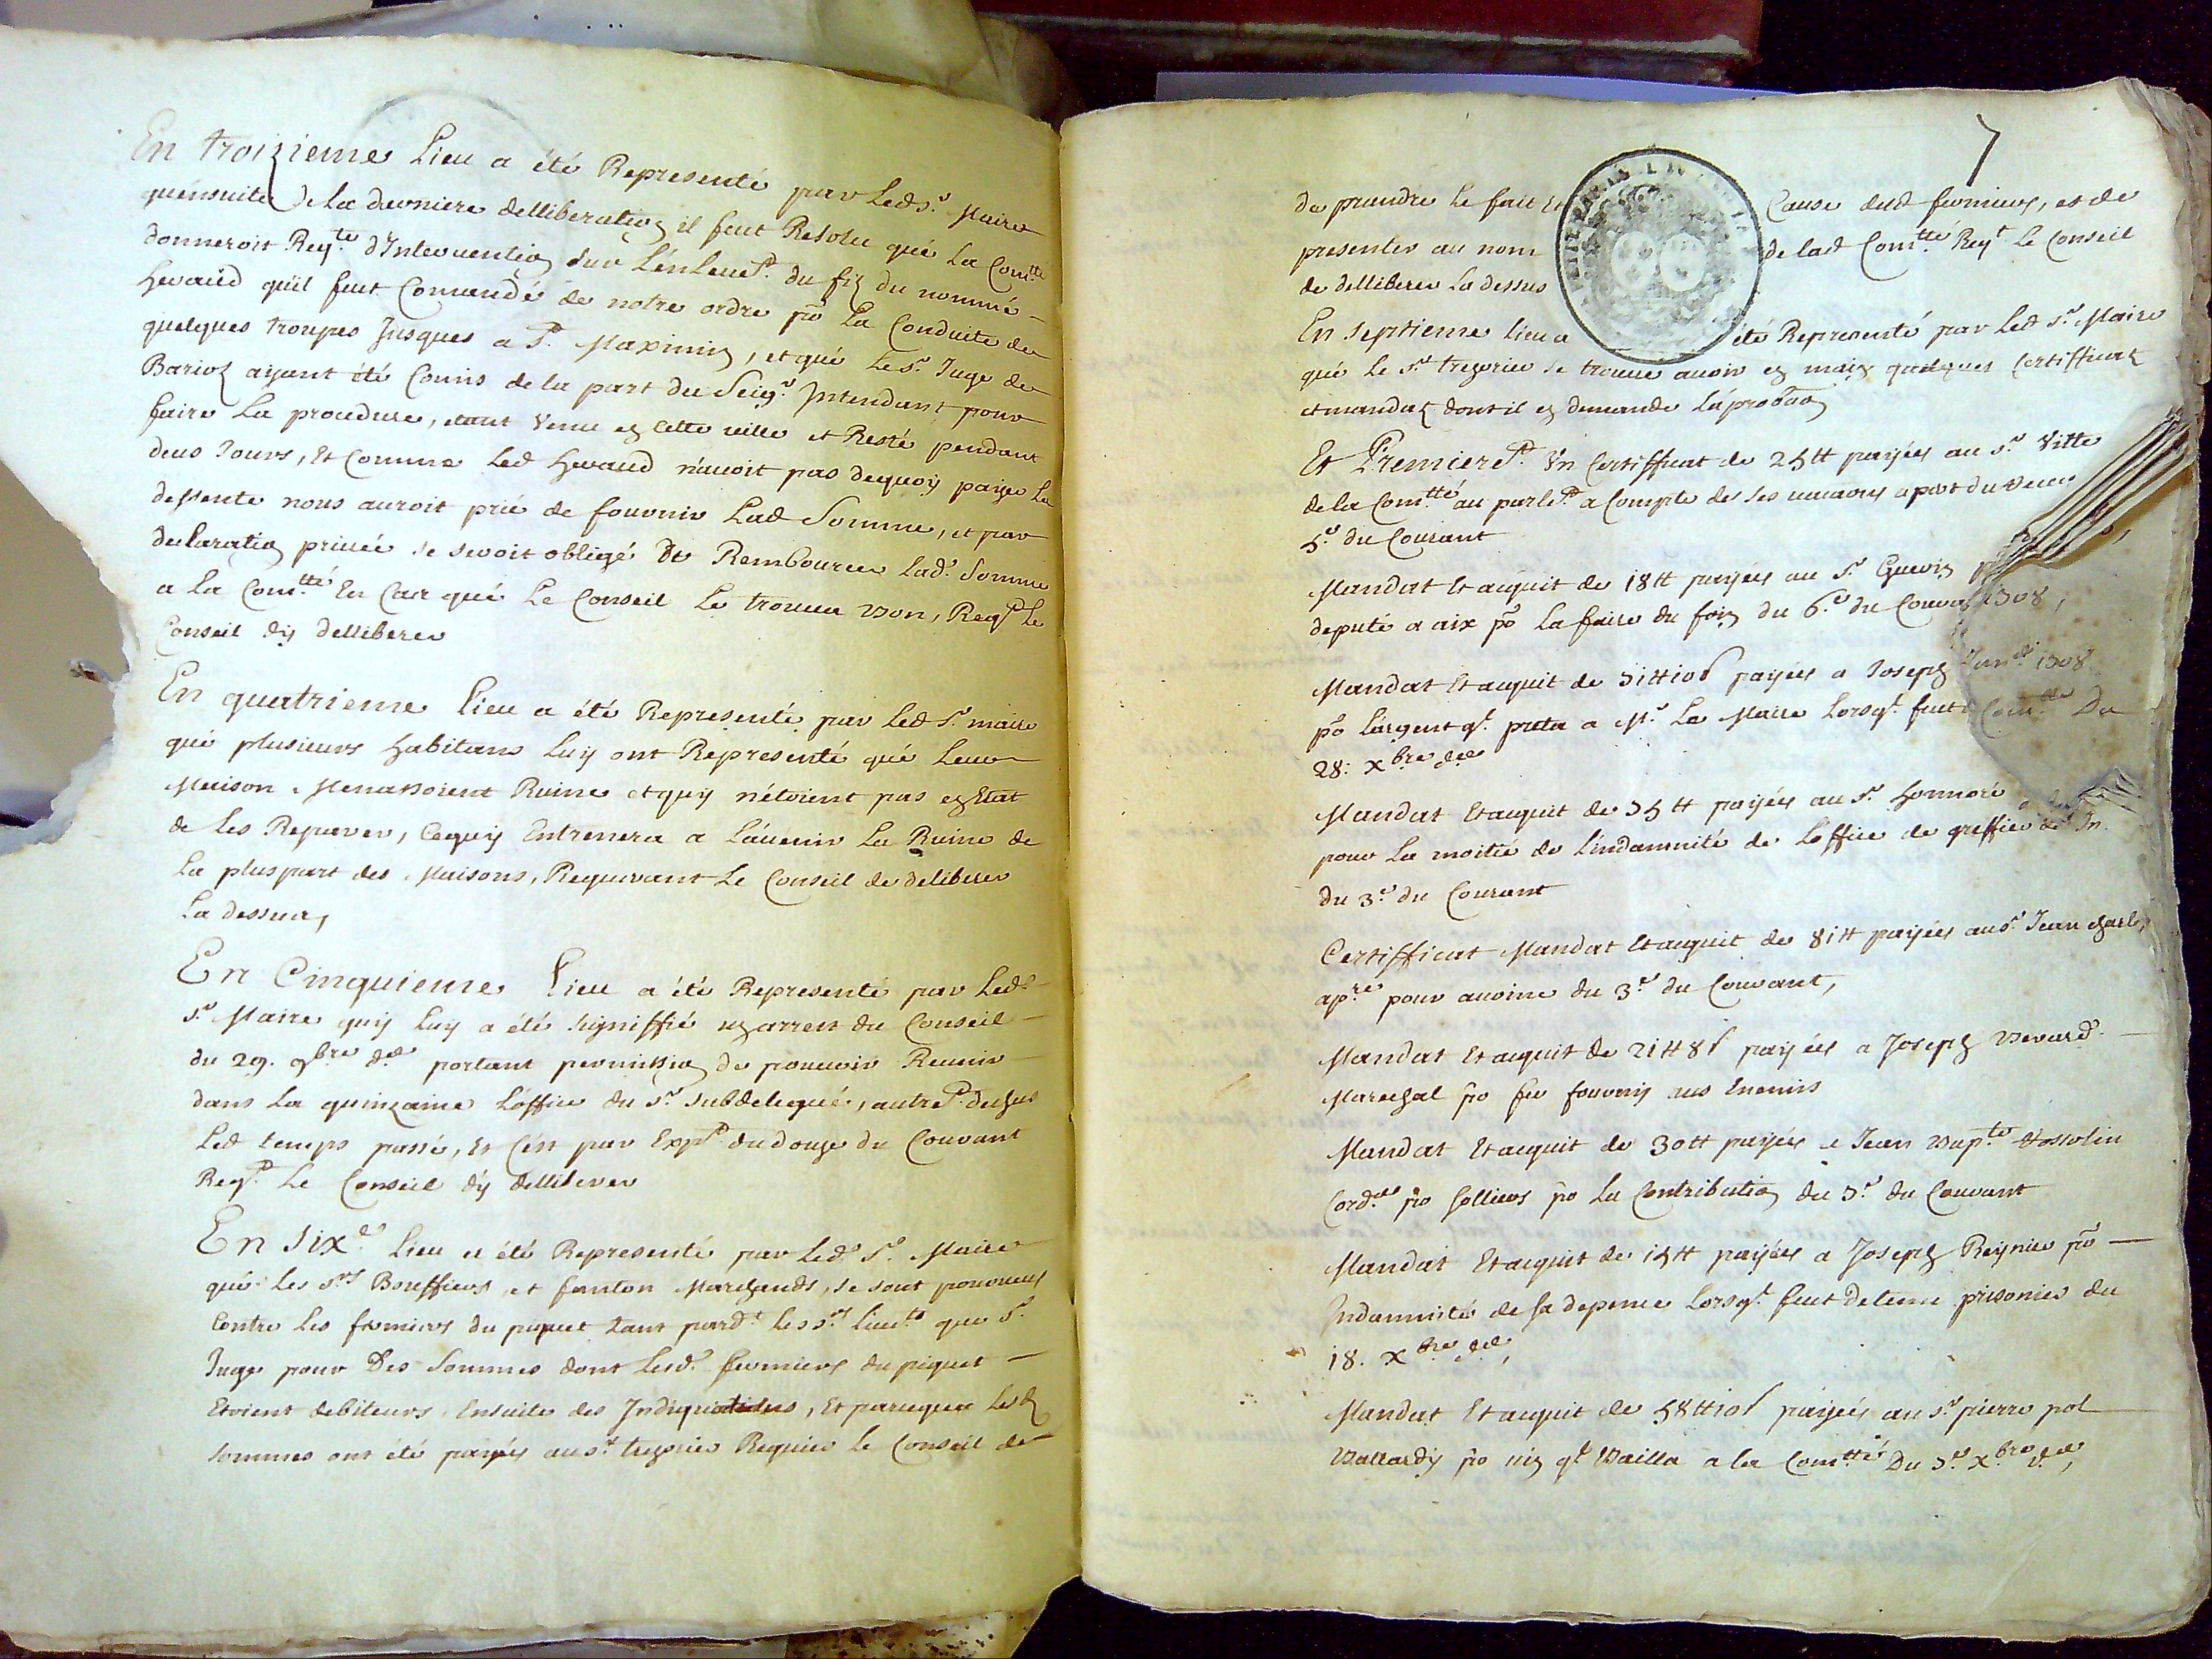 En troizieme Lieu a été Representé par Led s.r Maire
quénsuite de la derniere delliberation il feut Resolu qué La Com.tté
donneroit Req.te d'Interuention sur Lénleuem.t du fiz du nommé
heraud quil feut Comandé de notre ordre po La Conduite de
quelques troupes Jusques a S.t Maximin, et qué Le s.r Juge de
Bariol ayant été Comis de la part du Seig.r Intendant pour
faire La procedure, etant Venu en cette ville et Resté pendant
deus Jours, Et Comme Led heraud n'auoit pas dequoy payer La
dessente nous auroit prié de fournir Lad Somme, et par
declaration priuée se seroit obligé de Rembourcer lad.e Somme
a La Com.tté En Cas qué Le Conseil Le trouua bon, Req.t le
Conseil dy delliberer
En quatrieme lieu a été Representé par Led S.r maire
qué plusieurs habitans Luy ont Representé qué Leur
Maison Menassoient Ruine et quy n'étoient pas en Etat
de Les Reparer, Cequy Entrenera a Láuenir La Ruine de
La pluspart des Maisons, Requerant Le Conseil de deliberer
La dessus,
En Cinquieme Lieu a été Representé par Led.
s.r Maire quy Luy a été signiffié un arrest du Conseil
du 29. 9bre d.er portant permission de pouuoir Reunir
dans La quinzaine Lóffice du s.r subdelegué, autrem.t dechus
Led temps passé, Et Cést par Exp.t du douze du Courant
Req.t Le Conseil dy delliberer
En Six.e lieu a été Representé par Led. S.r Maire
qué les s.rs Bouffiers et fanton Marchands, se sont pourueus
Contre les fermiers du piquet tant pard.t les s.rs lieut.ts que S.r
Juge pour Des Sommes dont Lesd. fermiers du piquet
Etoient debiteurs Ensuite des , Et parceque Lesd
sommes ont été payés au s.r trezorier Requier le Conseil de
7
de prandre Le fait Et Cause desd fermiers, et de
presenter au nom de lad Com.tté Req.t Le Conseil
de delliberer La dessus
En Septieme lieu a été Representé par Led s.r Maire
qué Le s.r trezorier se trouue auoir en main quelques Certifficats
et mandats dont il en demande Laprobaon
Et Premierem.t Vn Certifficat de 25tt payées au s.r Vitte
de la Com.tté au parlem.t a Compte de ses
5.e du Courant
Mandat Et aquit de 18tt payées au S.r Guerin
deputé a aix po La faire du foin du 6.e du Coura 1708,
Mandat Et aquit de 31tt10s payées a Joseph 1708
po Lárgent q.l preta a M.r Le Maire Lorsq.l feut Com.tté Du
28: Xbre d.er
Mandat Et aquit de 35tt payées au S.r honnoré
pour La moitié de Lindamnité de Loffice de greffier de
du 3.e du Courant
Certifficat Mandat Et aquit de 81tt payées au s.r Jean charles
ap.re pour auoine du 3.e du Courant,
Mandat Et aquit de 21tt8s payées a Joseph Berard
Marechal po fer fourny aus Enemis
Mandat Et aquit de 30tt payées a Jean Bap.te
Cord.er po solliers po La Contribution du 3.e du Courant
Mandat Et aquit de 15tt payées a Joseph Reynier po
Indamnité de sa depence Lorsq.l feut detenu prisonier du
18. Xbre d.er,
Mandat Et aquit de 58tt10s payées au s.r pierre pol
Ballardy po vin q.l Bailla a la Com.tté Du 3.e Xbre d.er,